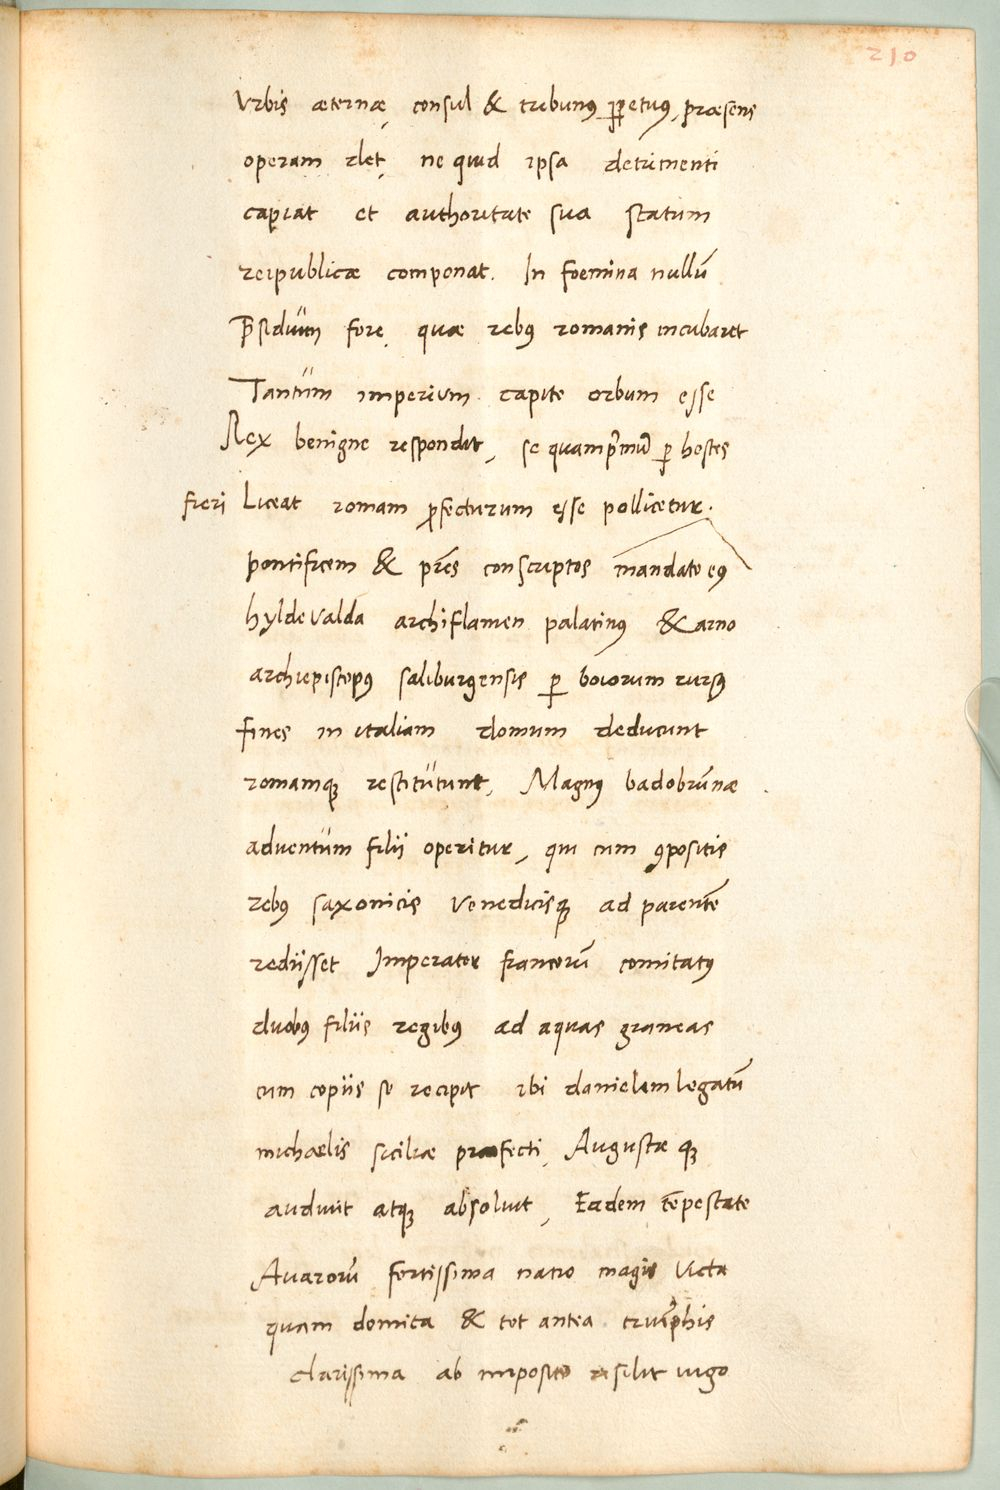 210
Vrbis æternæ, consul & tribunus ꝑpetuus, præsens
operam det, ne quid ipsa detrimenti
capiat et authoritate sua statum
reipublicæ componat. In foemina nullū
p̄sidium fore, quæ rebus romanis incubaret
Tantum imperium capite orbum esse
Rex benigne respondit, se quamprimū ꝑ hostes
fieri Liceat romam ꝓfecturum esse pollicetur.
pontificem & pres conscriptos mandato eius
hyldevalda archiflamen palatinus & arno
archiepiscopus saliburgensis ꝑ boiorum rursus
fines in italiam domum deducunt
romamqꝫ restitutunt, Magnus badobrūnæ
adventum filii operitur, qui cum ꝯpositis
rebus saxonicis Venedicisqꝫ ad parentē
rediisset Imperator francorū comitatus
duobus filiis regibus ad aquas graneas
cum copiis se recipit ibi danielem legatū
michaelis siciliæ præfecti, Augustæ qꝫ
audiuit atqꝫ absoluit, Eadem tēpestate
Auarorū fortissima natio magis victa
quam domita & tot antea triūphis
clarissima ab imposito resilit iugo